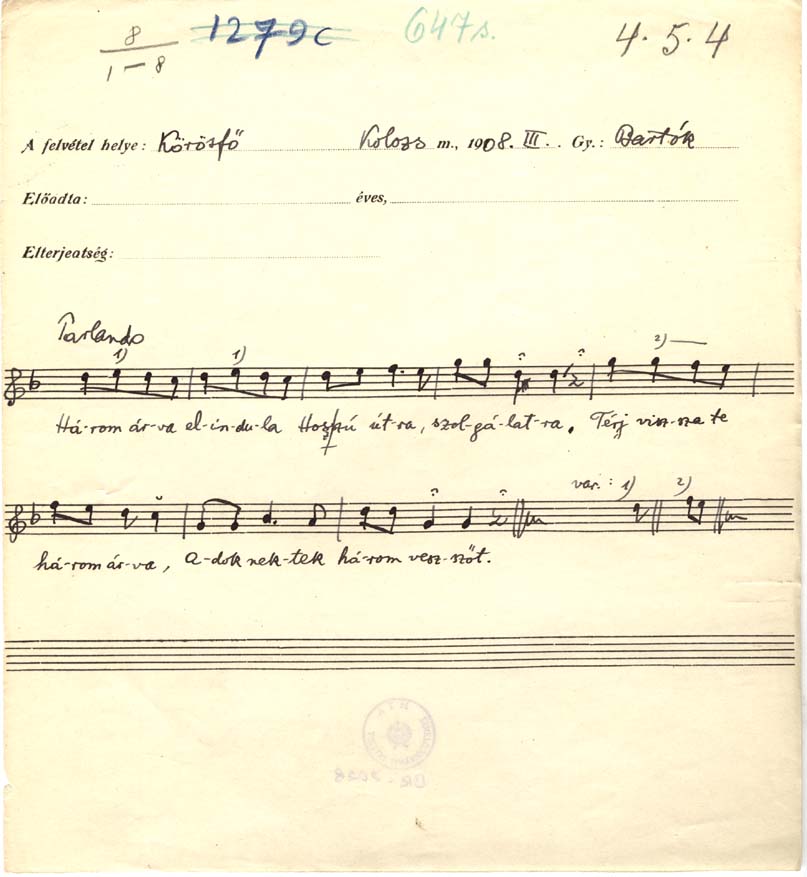 8 1279c 647s. 4. 5. 4
1-8
A felvétel helye: Körösfő Kolozs m., 1908. III. . Gy.: Bartók
Előadta: éves,
Elterjeatség:
Parlando
1) 1) 2)
Há-rom ár-va el-in-du-la Hosszú út-ra, szol-gá-lat-ra. Térj visz-sza te
var.: 1) 2)
há-rom ár-va, a-dok nek-tek há-rom vesz-szőt.